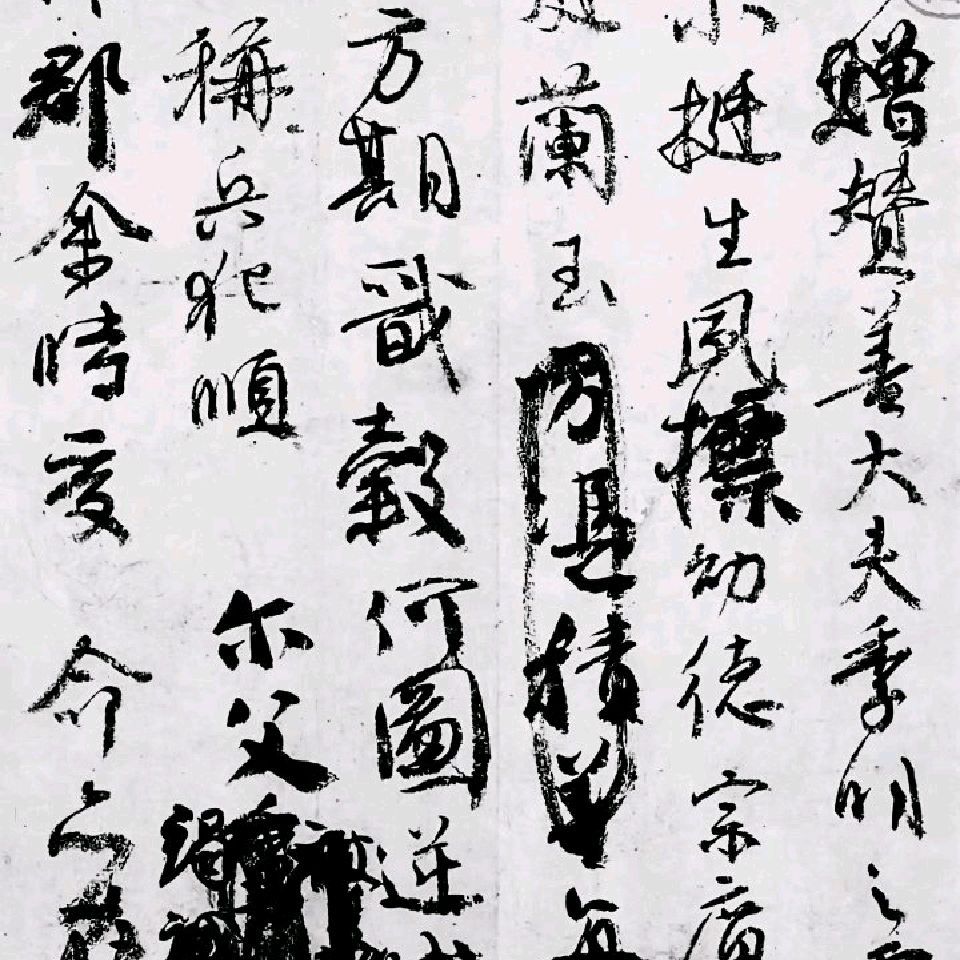 贈贊善大夫季明之
挺生夙標幼德宗廟
蘭玉方憑積善每
方期戩穀何圖逆
稱兵犯順尔父竭
郡余時受命